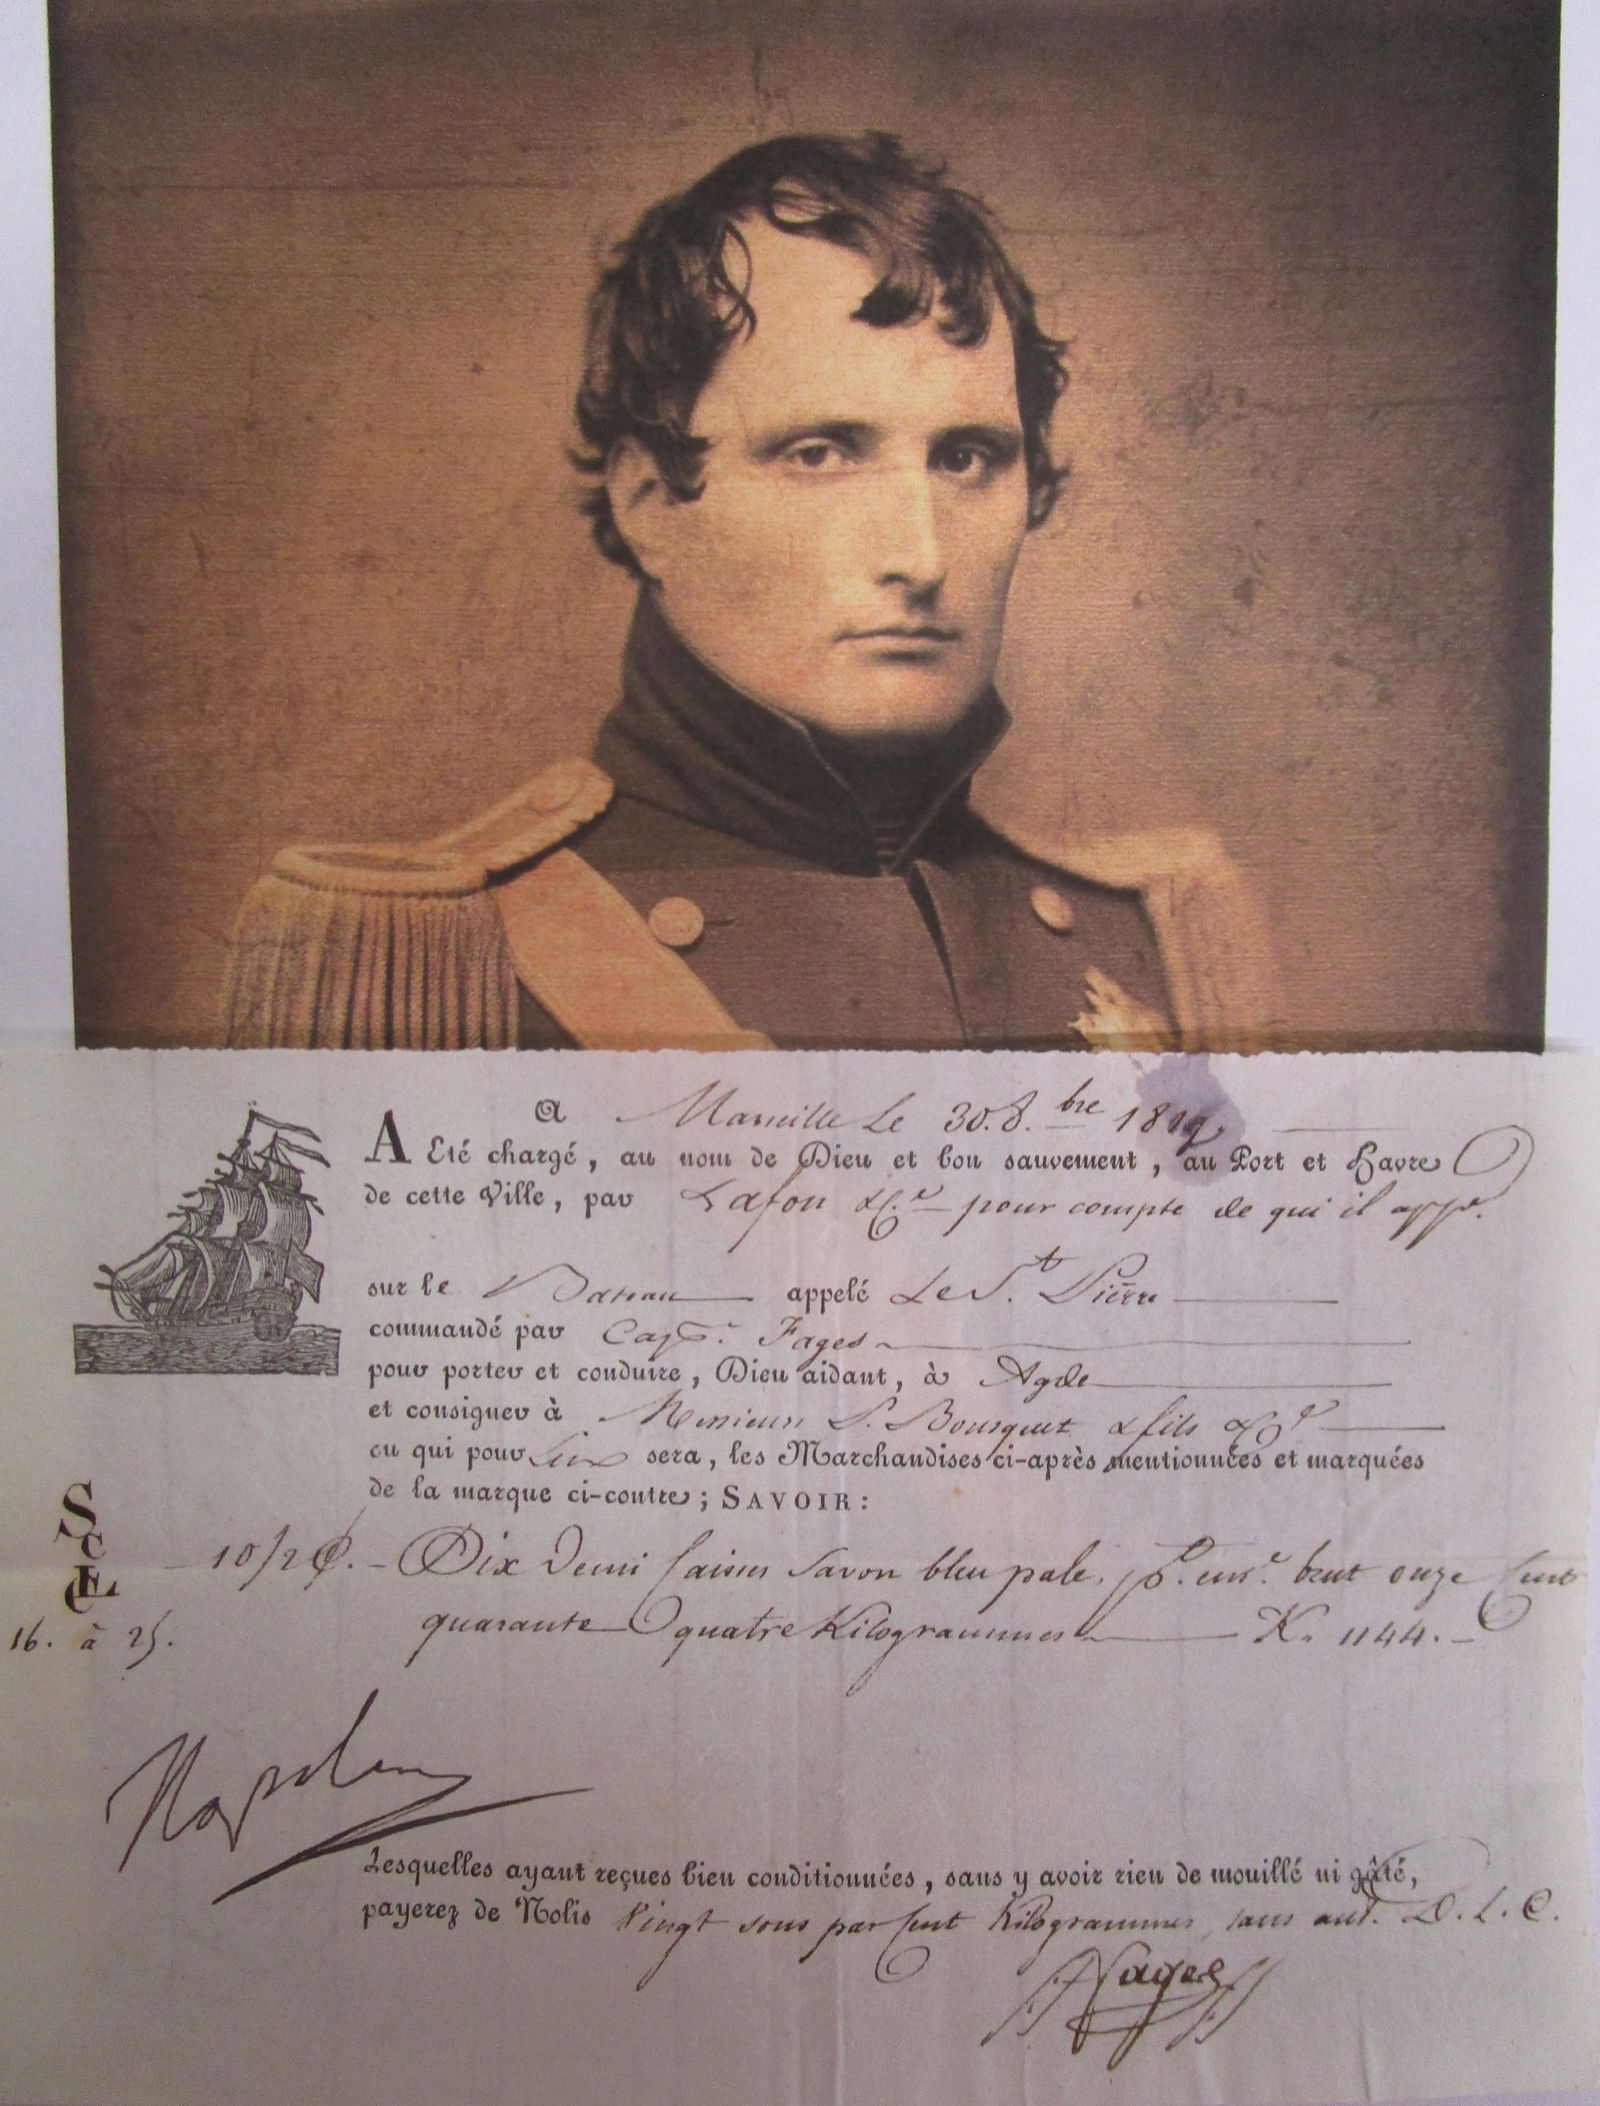 A Marseille Le 30. 8.bre 1819
A Eté chargé, au nom de Dieu et bon sauvement, au Port et Havre
de cette Ville, par Lafon & C.e pour compte de qui il app.e
sur le Bateau appelé Le S.t Pierre
commandé par Cap.e Fages
pour porter et conduire, Dieu aidant, à Agde
et consigner à Messieurs P. Bousquet & fils & C.e
ou qui pour Eux sera, les Marchandises ci-après mentionnées et marquées
de la marque ci-contre; SAVOIR:
10/2 C. Dix Demi Caisses Savon bleu pale, p.t ens.e brut onze Cent
16. à 25. quarante quatre Kilogrammes K. 1144.
Napoleon
Lesquelles ayant reçues bien conditionnées, sans y avoir rien de mouillé ni gâté,
payerez de Nolis Vingt sous par Cent Kilogrammes, sans aut. D. L. C.
Fages